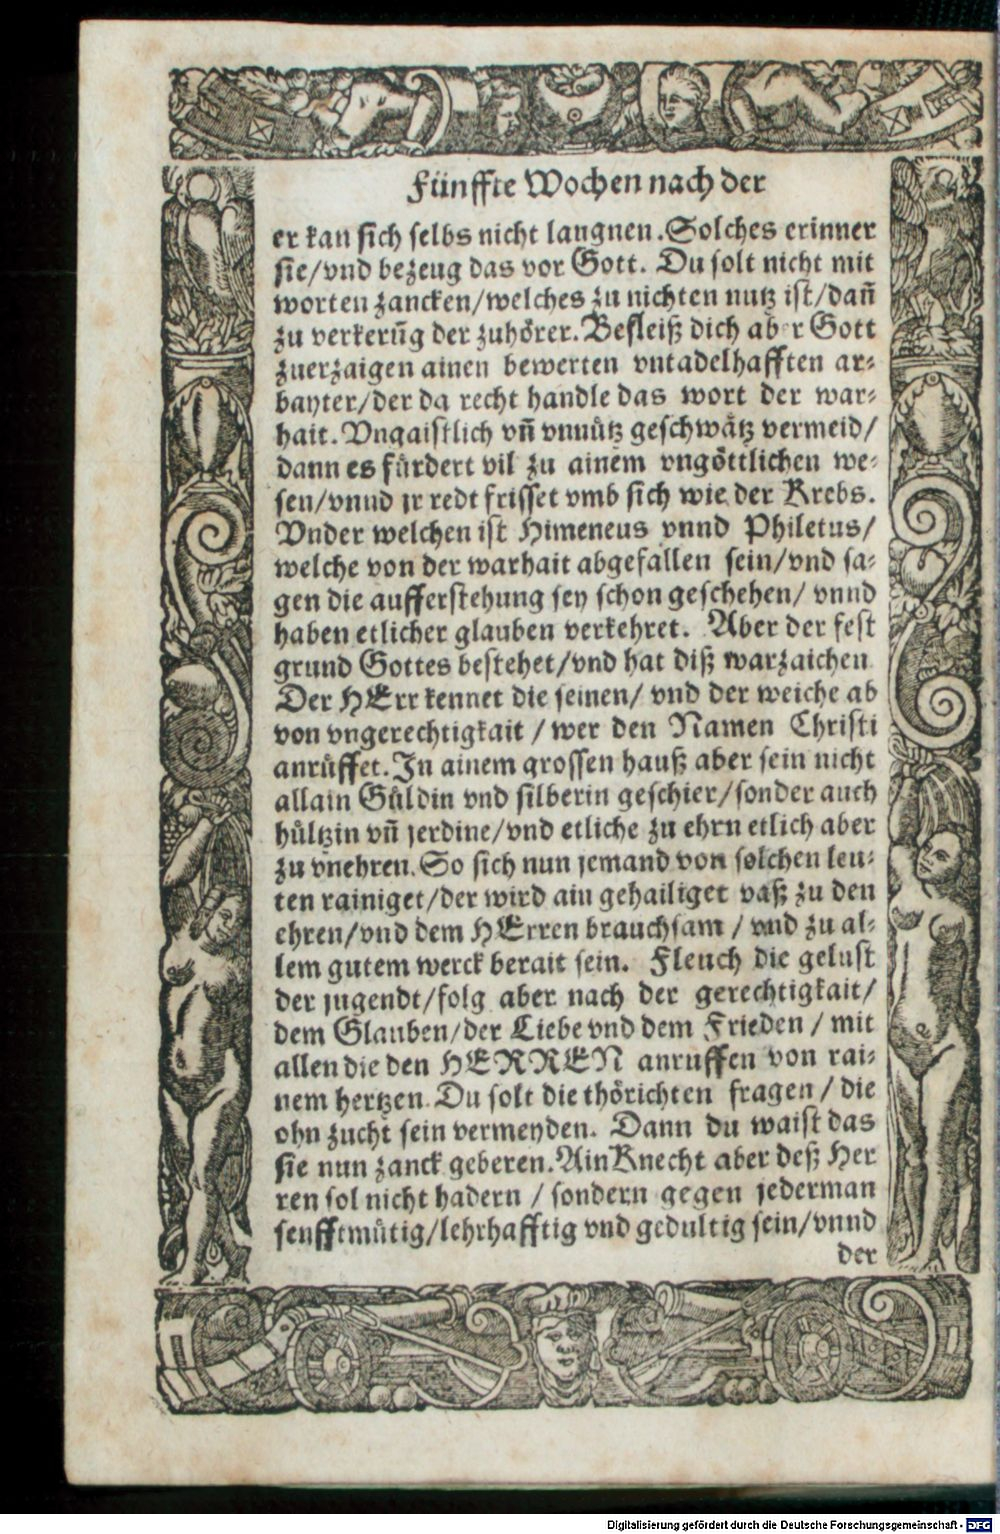 Fünffte Wochen nach der
er kan sich selbs nicht laugnen. Solches erinner
sie/vnd bezeug das vor Gott. Du solt nicht mit
worten zancken/welches zu nichten nutz ist/dañ
zu verkerūg der zuhörer. Befleiß dich aber Gott
zuerzaigen ainen bewerten vntadelhafften ar-
bayter/der da recht handle das wort der war-
hait. Vngaistlich vñ vnnütz geschwätz vermeid/
dann es fürdert vil zu ainem vngöttlichen we-
sen/vnnd jr redt frisset vmb sich wie der Krebs.
Vnder welchen ist Himeneus vnnd Philetus/
welche von der warhait abgefallen sein/vnd sa-
gen die aufferstehung sey schon geschehen/ vnnd
haben etlicher glauben verkehret. Aber der fest
grund Gottes bestehet/vnd hat diß warzaichen
Der HErr kennet die seinen/ vnd der weiche ab
von vngerechtigkait / wer den Namen Christi
anrüffet. In ainem grossen hauß aber sein nicht
allain Güldin vnd silberin geschier/sonder auch
hültzin vñ jerdine/vnd etliche zu ehrn etlich aber
zu vnehren. So sich nun jemand von solchen leu-
ten rainiget/der wird ain gehailiget vaß zu den
ehren/vnd dem HErren brauchsam / vnd zu al-
lem gutem werck berait sein. Fleuch die gelust
der jugendt/folg aber nach der gerechtigkait/
dem Glauben/der Liebe vnd dem Frieden / mit
allen die den HERREN anruffen von rai-
nem hertzen. Du solt die thörichten fragen / die
ohn zucht sein vermeyden. Dann du waist das
sie nun zanck geberen. Ain Knecht aber deß Her
ren sol nicht hadern / sondern gegen jederman
senfftmütig/lehrhafftig vnd gedultig sein/vnnd
der
Digitalisierung gefördert durch die Deutsche Forschungsgemeinschaft - DFG